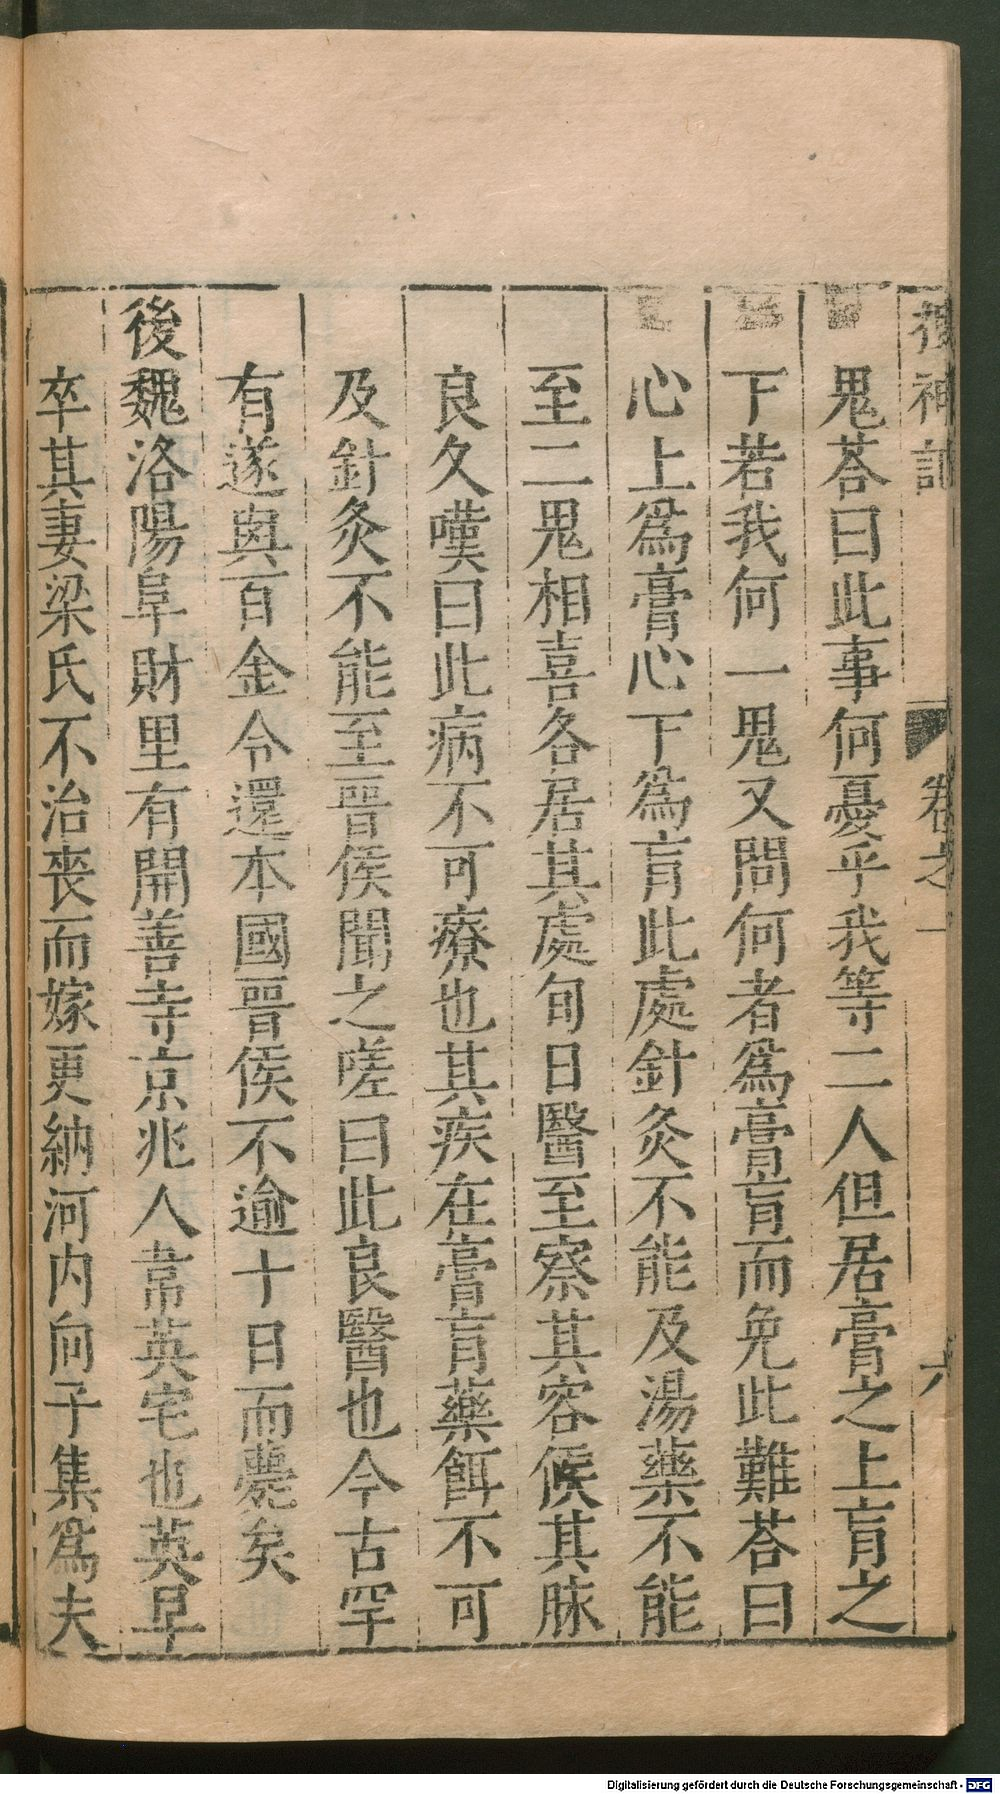 搜神記 卷之一 六
鬼荅曰此事何憂乎我等二人但居膏之上肓之
下若我何一鬼又問何者爲膏肓而免此難荅曰
心上爲膏心下爲肓此處針灸不能及湯藥不能
至二鬼相喜各居其處旬日醫至察其容候其脉
良久嘆曰此病不可療也其疾在膏肓藥餌不可
及針灸不能至晉侯聞之嗟曰此良醫也今古罕
有遂與百金令還本國晉侯不逾十日而薨矣
後魏洛陽阜財里有開善寺京兆人韋英宅也英早
卒其妻梁氏不治喪而嫁更納河内向子集爲夫
Digitalisierung gefördert durch die Deutsche Forschungsgemeinschaft - DFG